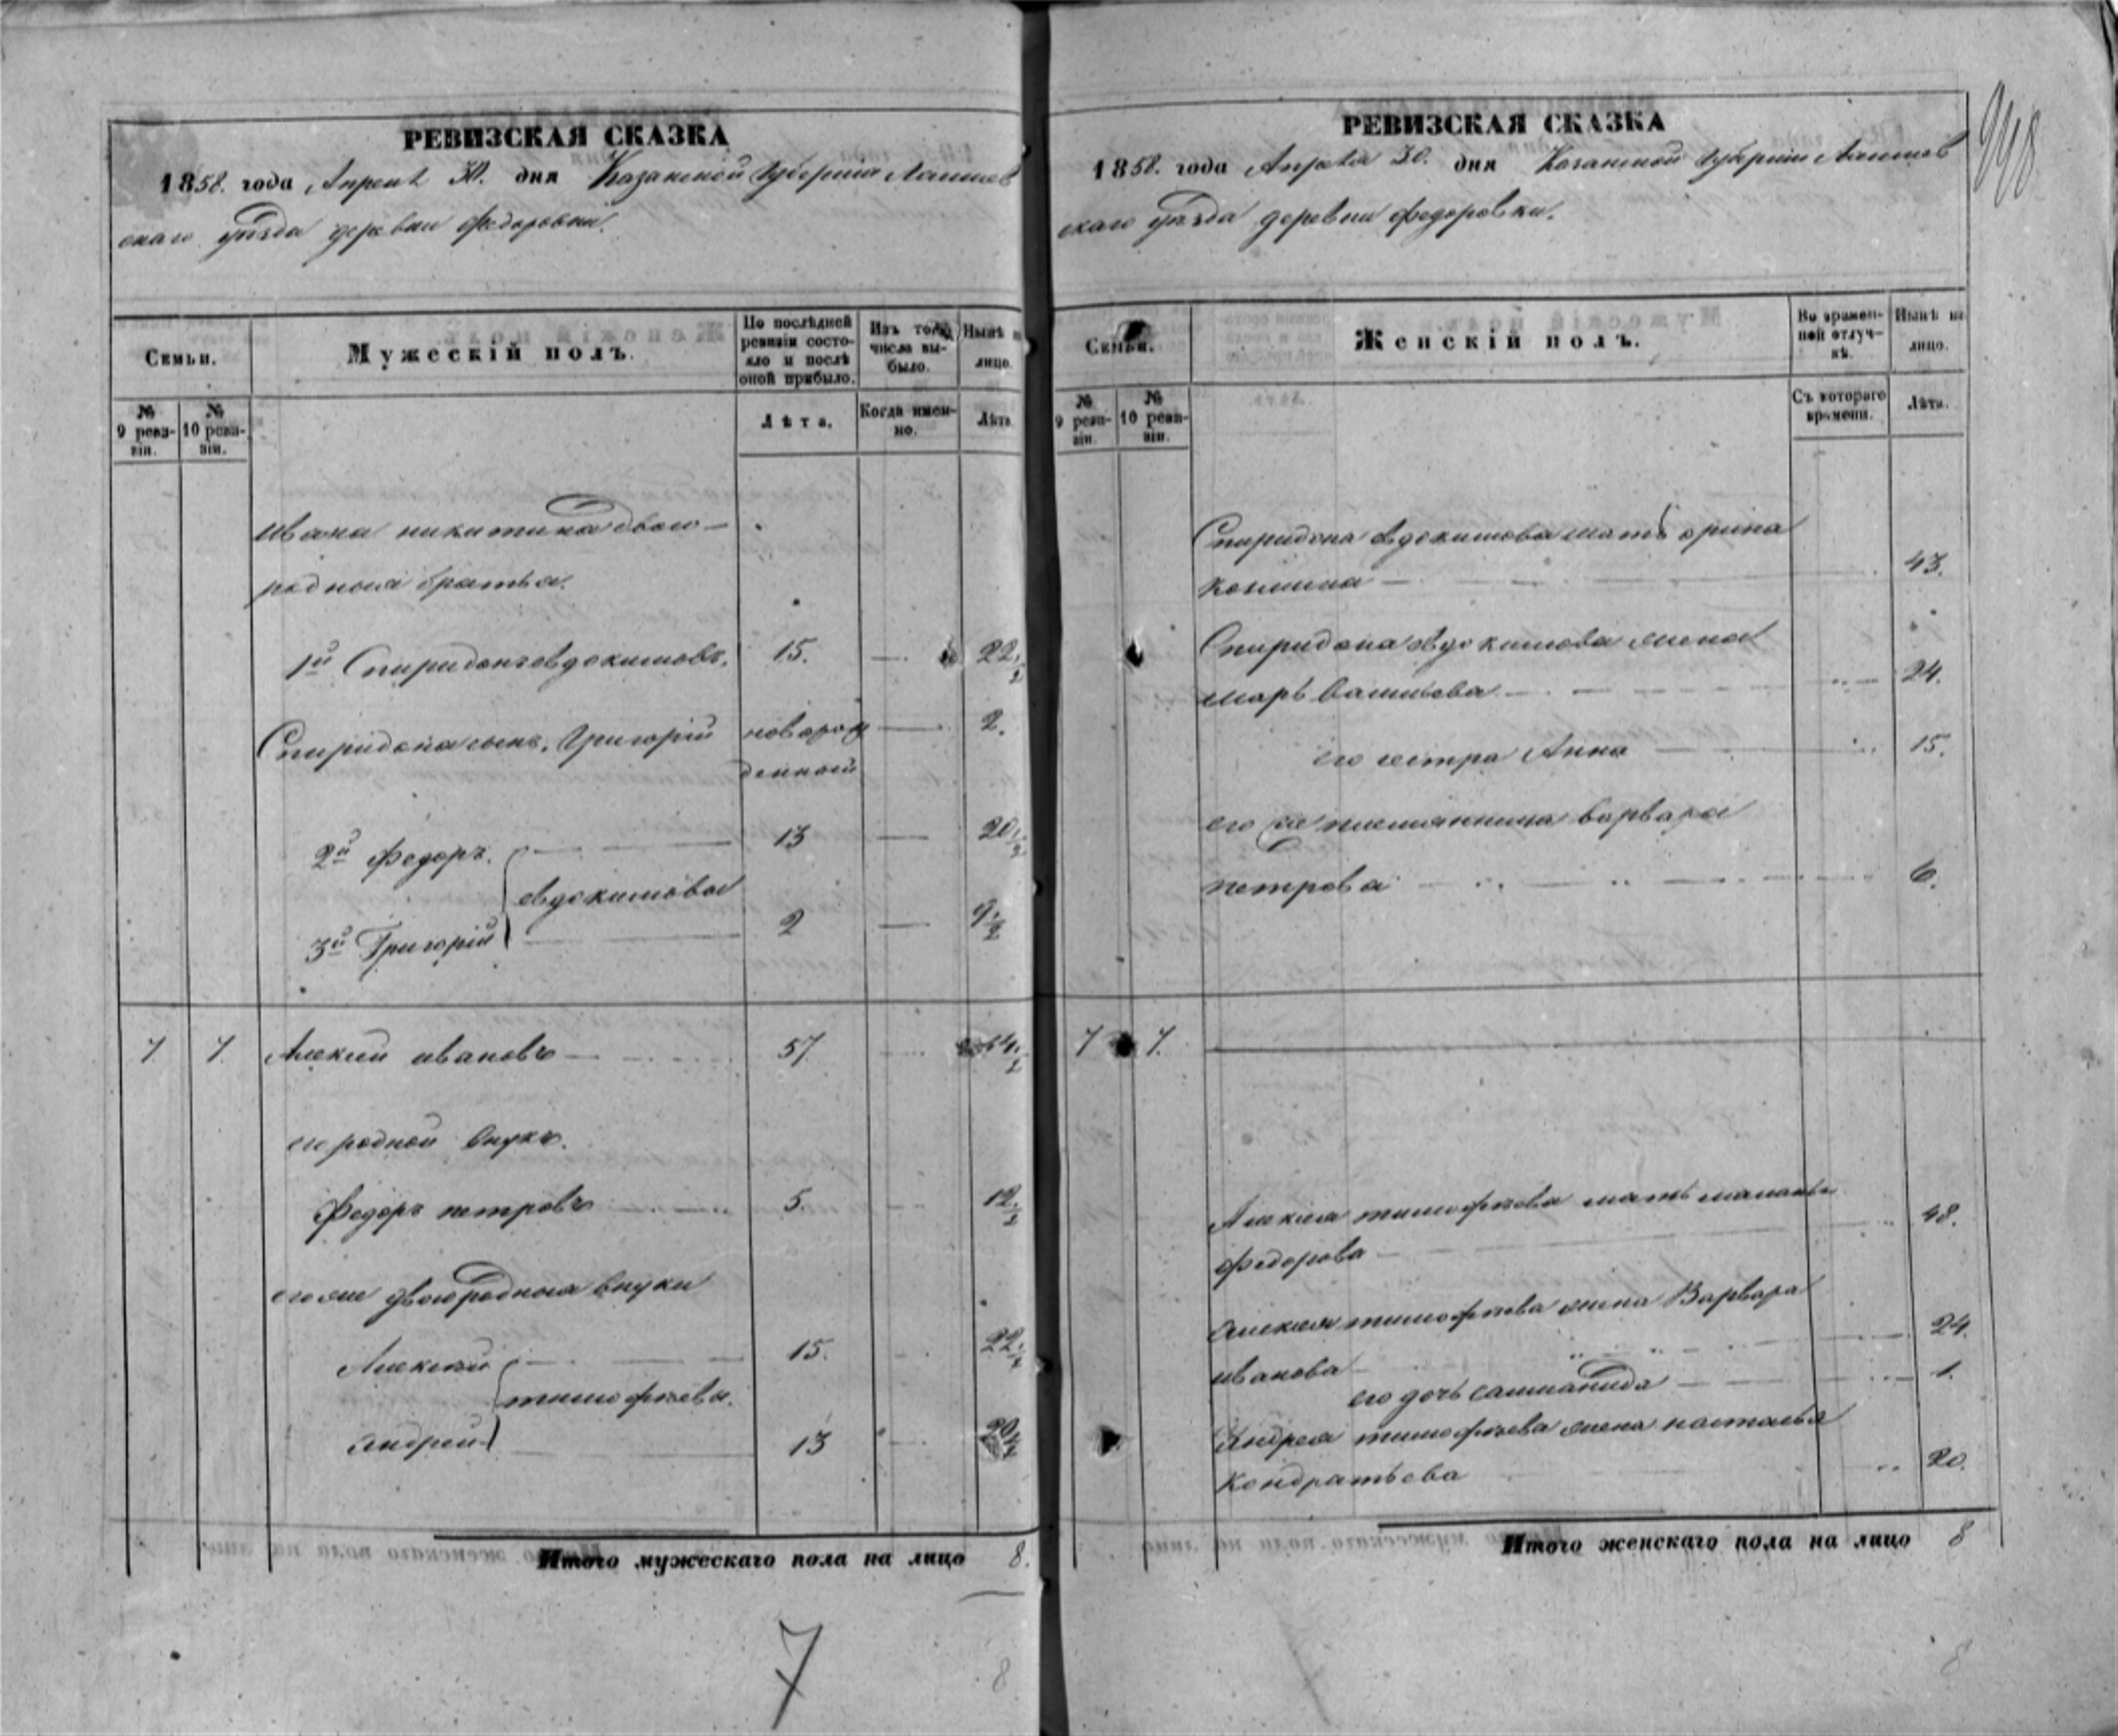 РЕВИЗСКАЯ СКАЗКА
1858. года Апреля 30. дня Казанской Губернiи Лаишев
скаго уѣзда деревни Федоровки.
Семьи.
Мужескiй полъ.
По послѣдней ревизiи состояло и послѣ оной прибыло.
Изъ того числа выбыло.
Нынѣ на лицо.
№ 9 ревизiи.
№ 10 ревизiи.
Лѣта.
Когда именно.
Лѣта.
Ивана никитина двою-
родныя братья.
1й Спиридонъ евдокимовъ. 15. — 22 1/2
Спиридона сынъ, Григорiй новорож — 2.
денный
2й Федоръ. 13 — 20 1/2
евдокимовы
3й Григорiй 2 — 9 1/2
7 7. Алексiй ивановъ 57 64 1/2
его родной внукъ.
Федоръ петровъ 5. 12 1/2
его же двоюродныя внуки
Алексѣй 15. 22 1/2
тимофѣевы.
андрей 13 20 1/2
Итого мужескаго пола на лицо 8.
7
8
РЕВИЗСКАЯ СКАЗКА
1858. года Апреля 30. дня Казанской Губернiи Лаишев
скаго уѣзда деревни Федоровки.
948
Семьи.
Женскiй полъ.
Во временной отлучкѣ.
Нынѣ на лицо.
№ 9 ревизiи.
№ 10 ревизiи.
Съ котораго времени.
Лѣта.
Спиридона евдокимова мать арина
козмина — 43.
Спиридона евдокимова жена
марья Васильева — 24.
его сестра Анна — 15.
его же племянница варвара
петрова — 6.
7 7.
Алексея тимофѣева мать маланья
федорова — 48.
Алексея тимофѣева жена Варвара
иванова 24.
его дочь 1.
Андрея тимофѣева жена наталья
Кондратьева 20.
Итого женскаго пола на лицо 8
8